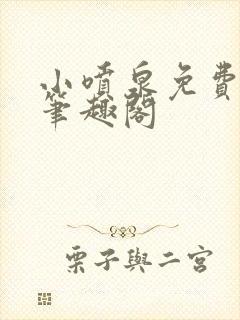 小噴泉免費
筆趣閣
栗子與二宮